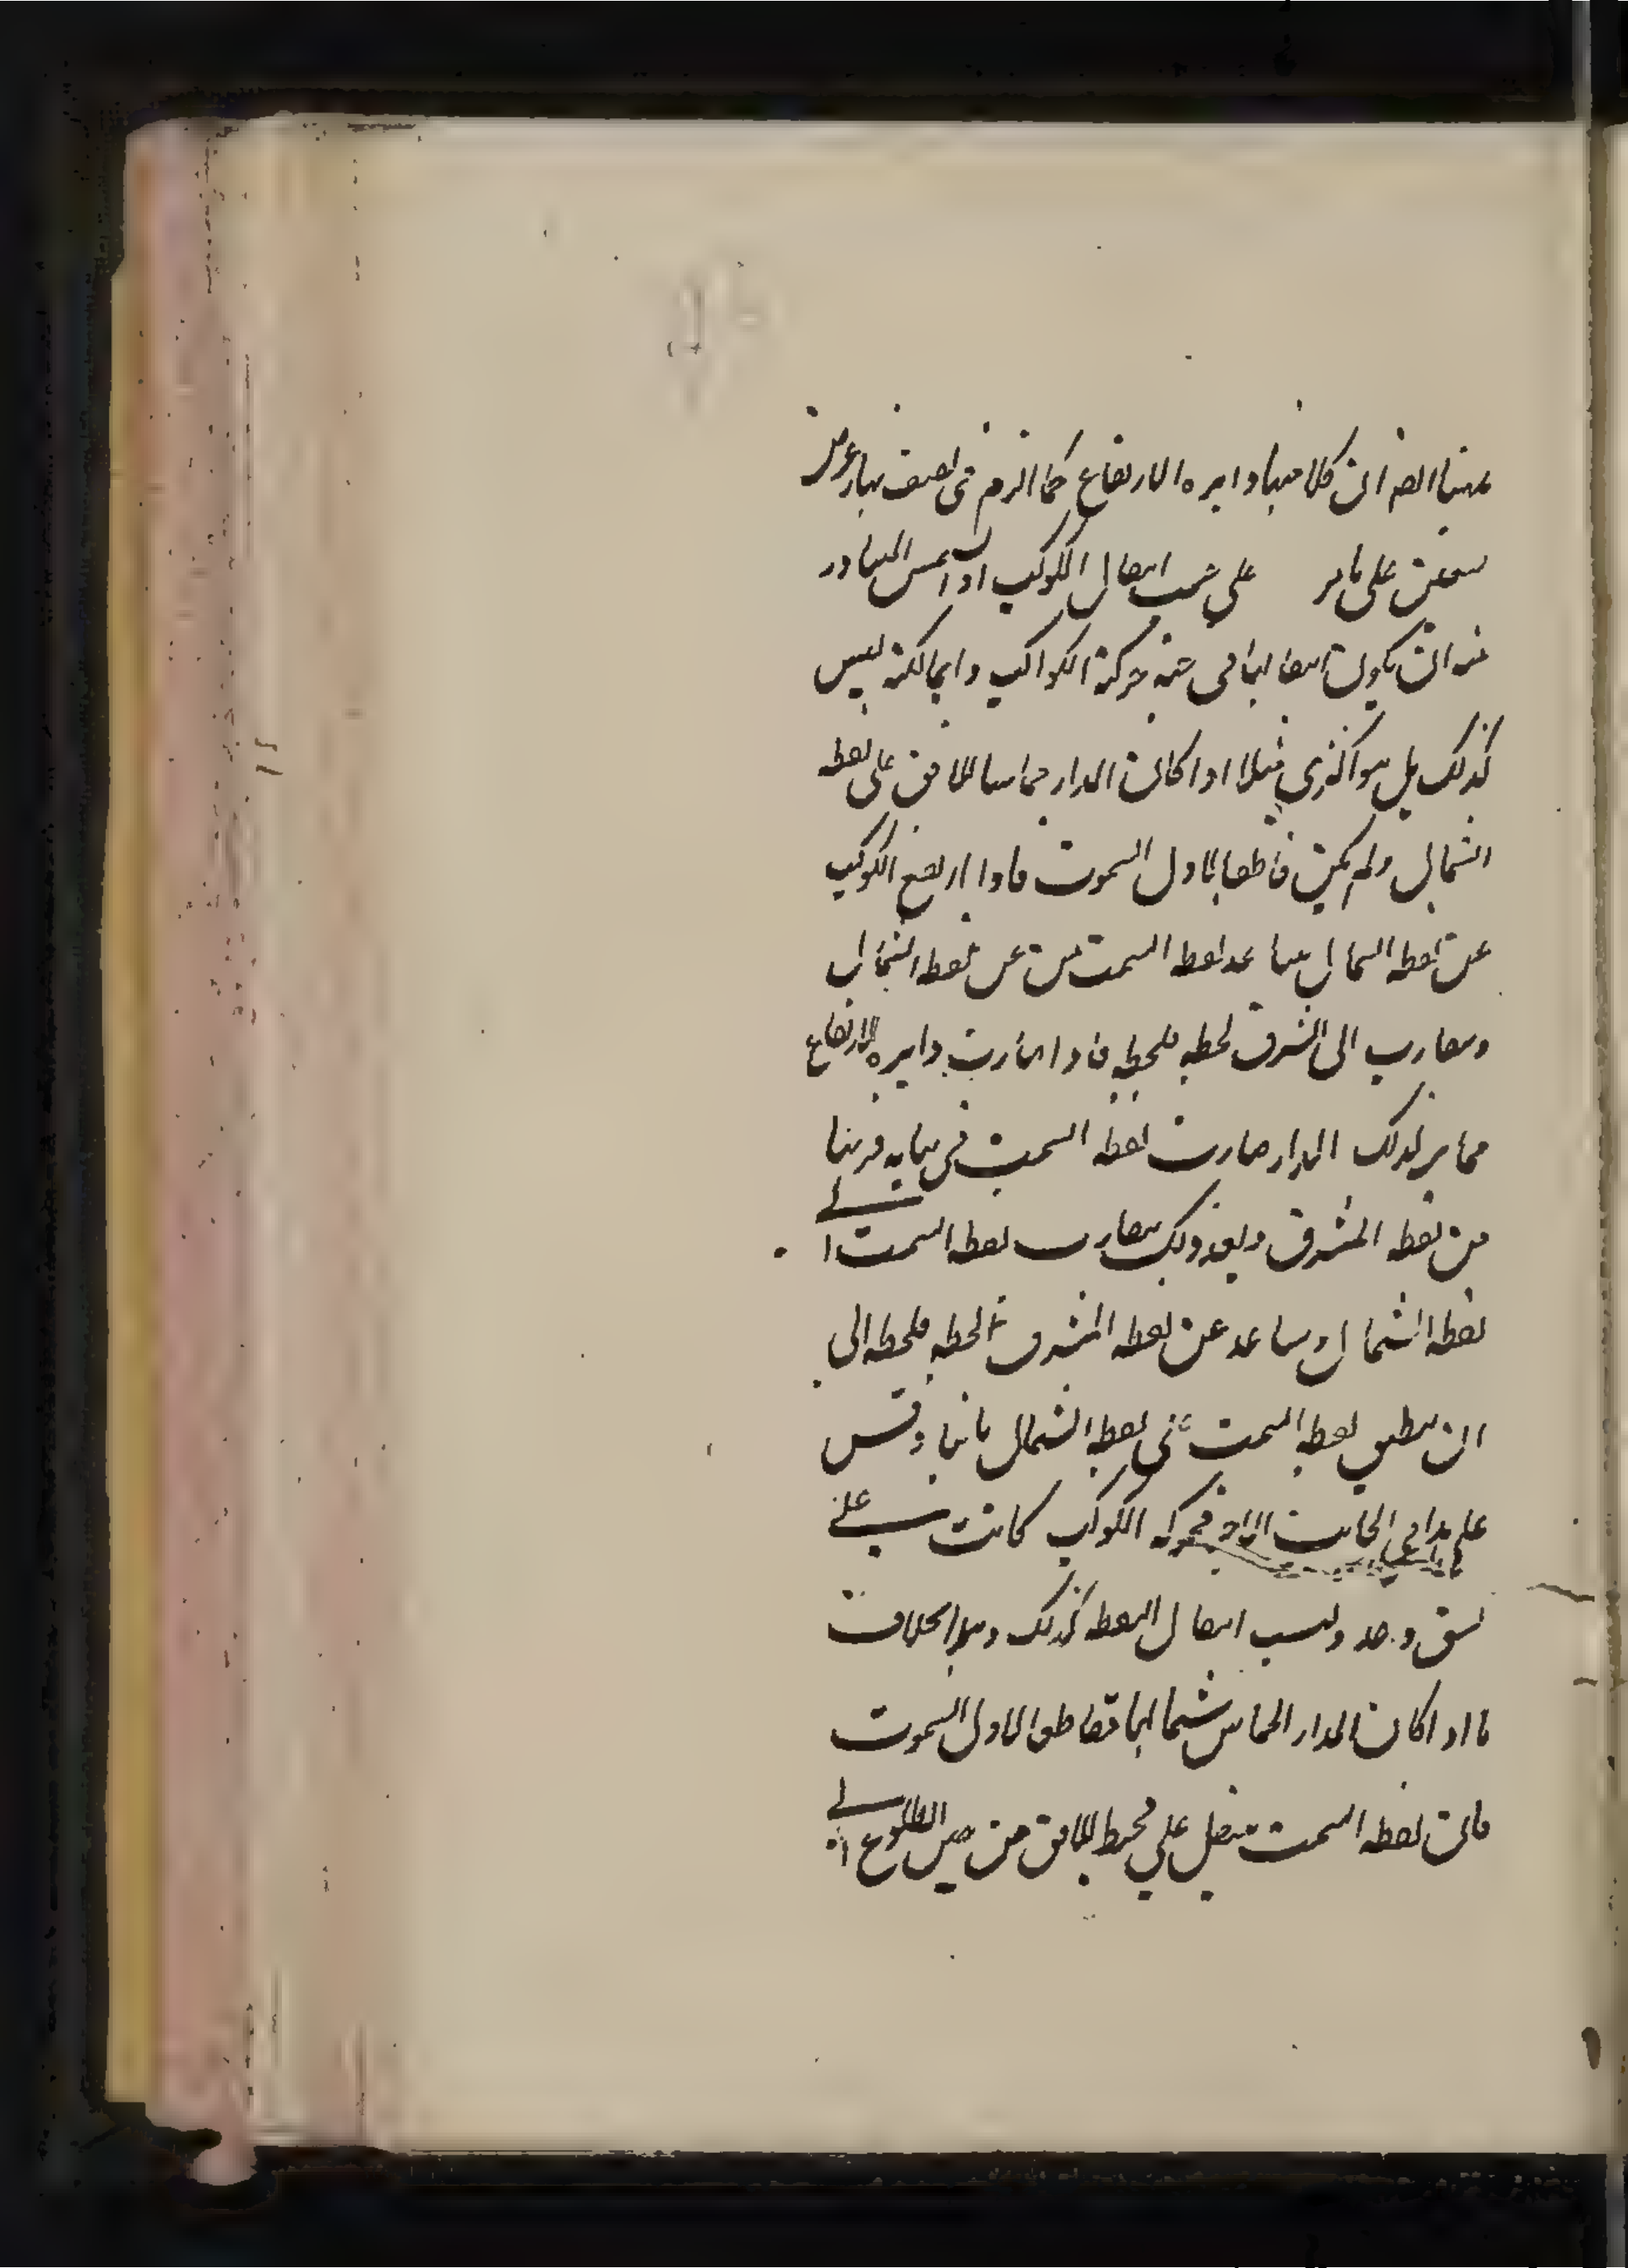 ههنا ايضا ان كلامها دايره الارتفاع كما الزم في نصف نهار عرض
سعين على ما مر على حسب انتقال الكوكب او الشمس المبادر
منه ان يكون انتقالها في جهة حركة الكواكب دايما لكنه ليس
كذلك بل هو اكثري مثلا اذا كان المدار مماسا للافق على نقطه
الشمال ولم يكن قاطعا لاول السموت فاذا ارتفع الكوكب
عن نقطه الشمال تباعد نقطه السمت من عن نقطه الشمال
وتقارب الى الشرق لحظه فلحظه فاذا صارت دايره الارتفاع
مماسه لذلك المدار صارت نقطه السمت في نهايه قربها
من نقطه المشرق وبعد ذلك تقارب نقطه السمت الى
نقطه الشمال وتباعد عن نقطه المشرق لحظه فلحظه الى
ان تنطبق نقطه السمت على نقطه الشمال ثانيا وقس
على هذا في الجانب الاخر فحركه الكوكب كانت على
نسق واحد وليست انتقال النقطه كذلك وهذا بخلاف
ما اذا كان المدار المماس شماليا قاطعا لاول السموت
فان نقطه السمت تنتقل على محيط الافق من حين الطلوع الى